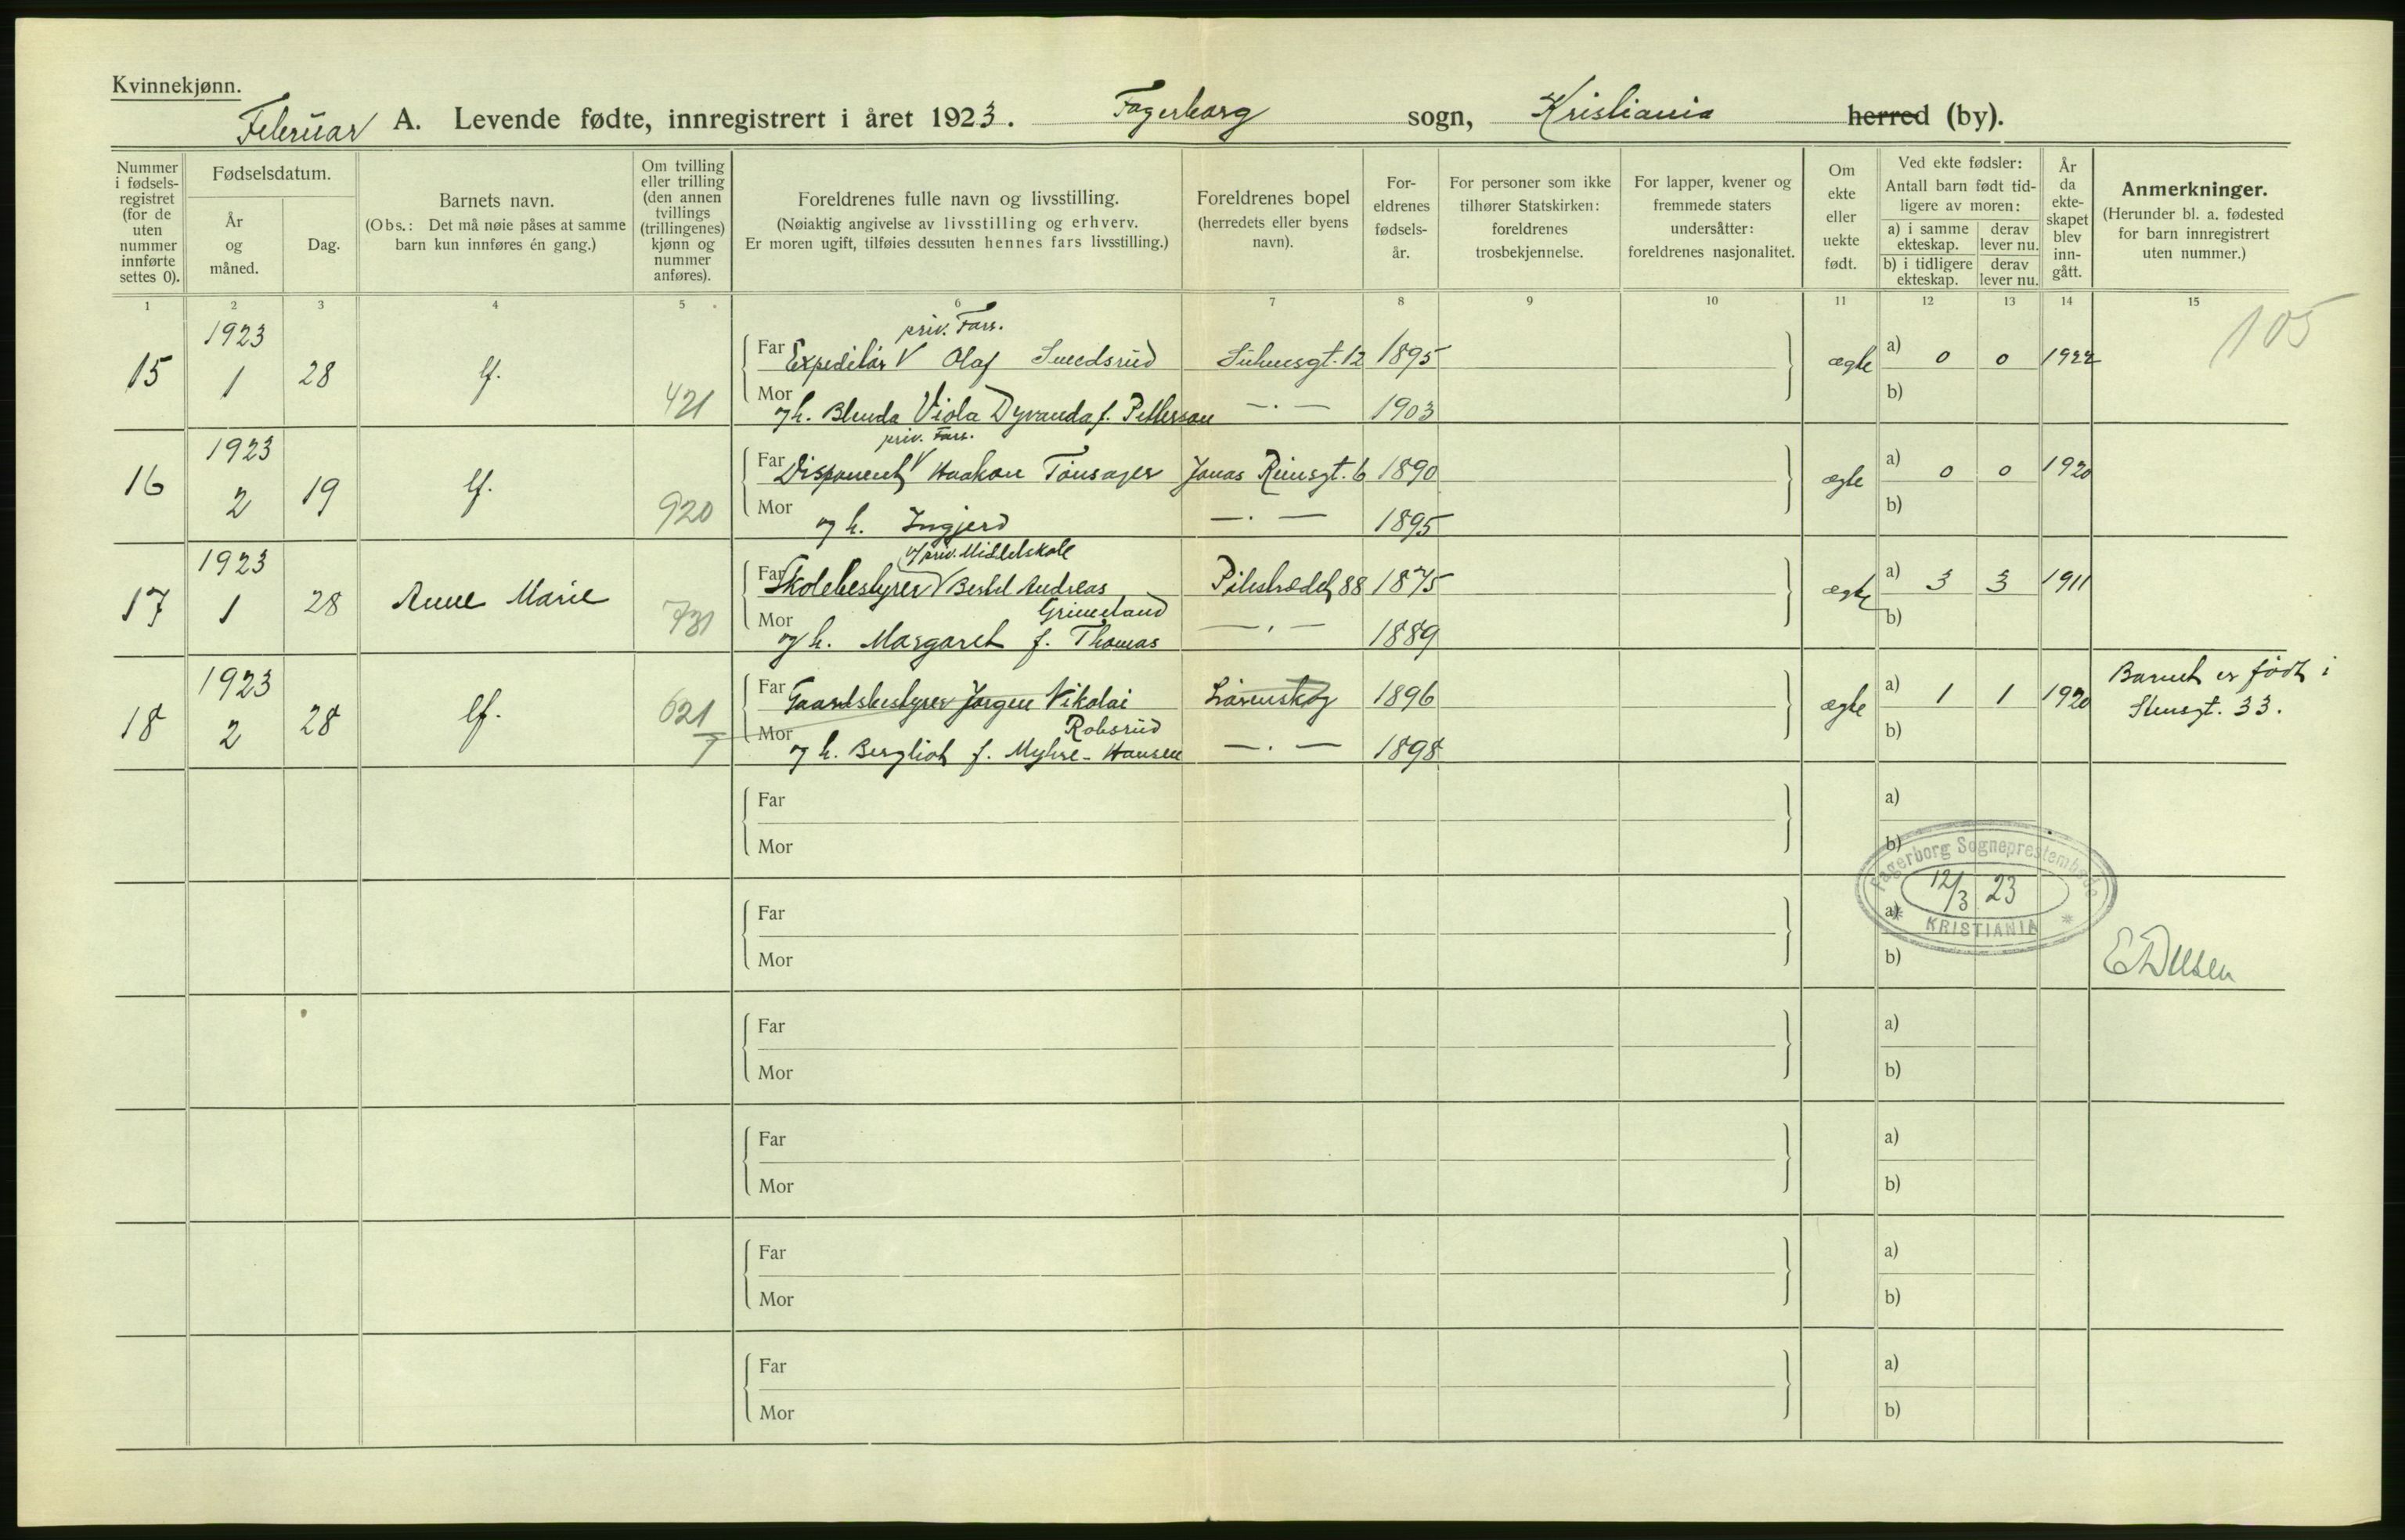 Kvinnekjønn.
Februar A. Levende fødte, innregistrert i året 1923. Fagerborg sogn, Kristiania herred (by).
Nummer i fødsels-registret (for de uten nummer innførte settes 0).
Fødselsdatum.
År og måned.
Dag.
Barnets navn.
(Obs.: Det må nøie påses at samme barn kun innføres én gang.)
Om tvilling eller trilling (den annen tvillings (trillingenes) kjønn og nummer anføres).
Foreldrenes fulle navn og livsstilling.
(Nøiaktig angivelse av livsstilling og erhverv.
Er moren ugift, tilføies dessuten hennes fars livsstilling.)
Foreldrenes bopel
(herredets eller byens navn).
For-eldrenes fødsels-år.
For personer som ikke tilhører Statskirken: foreldrenes trosbekjennelse.
For lapper, kvener og fremmede staters undersåtter: foreldrenes nasjonalitet.
Om ekte eller uekte født.
Ved ekte fødsler:
Antall barn født tid-ligere av moren:
a) i samme ekteskap. derav lever nu.
b) i tidligere ekteskap. derav lever nu.
År da ekte-skapet blev inn-gått.
Anmerkninger.
(Herunder bl. a. fødested for barn innregistrert uten nummer.)
1 2 3 4 5 6 7 8 9 10 11 12 13 14 15
105
priv. Farr.
15 1923 1 28 lf. 421 Far Expeditør V Olaf Smedsrud Suhmsgt. 12 1895 ægte a) 0 0 1922
Mor og h. Blenda Viola Dyvanda f. Petterson —·— 1903 b)
priv. Farr.
16 1923 2 19 lf. 920 Far Disponent V Haakon Tønsager Jonas Reinsgt. 6 1890 ægte a) 0 0 1920
Mor og h. Ingjerd —·— 1895 b)
v/ priv. Middelskole
17 1923 1 28 Anne Marie 731 Far Skolebestyrer V Bertel Andreas Pilestrædet 88 1875 ægte a) 3 3 1911
Grimeland
Mor og h. Margaret f. Thomas —·— 1889 b)
18 1923 2 28 lf. 621 7 Far Gaardsbestyrer Jørgen Nikolai Lørenskog 1896 ægte a) 1 1 1920 Barnet er født i
Robsrud
Stensgt. 33.
Mor og h. Bergliot f. Myhre-Hansen —·— 1898 b)
Far a)
Mor b)
Fagerborg Sogneprestembede
12/3 23
KRISTIANIA
Far a)
Mor b)
Far a)
Mor b)
Far a)
Mor b)
Far a)
Mor b)
Far a)
Mor b)